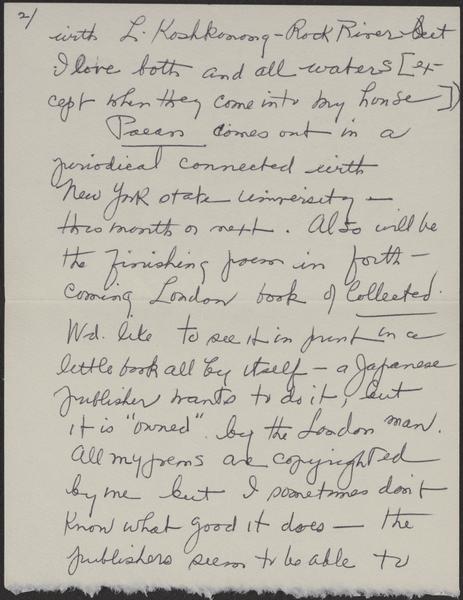 2/
with L. Koshkonong - Rock River but
I love both and all waters [ex-
cept when they come into my house])
Paean comes out in a
periodical connected with
New York state University —
this month or next. Also will be
the finishing poem in forth-
coming London book of Collected.
Wd. like to see it in print in a
little book all by itself — a Japanese
publisher wants to do it, but
it is "owned" by the London man.
All my poems are copyrighted
by me but I sometimes don't
know what good it does — the
publishers seem to be able to